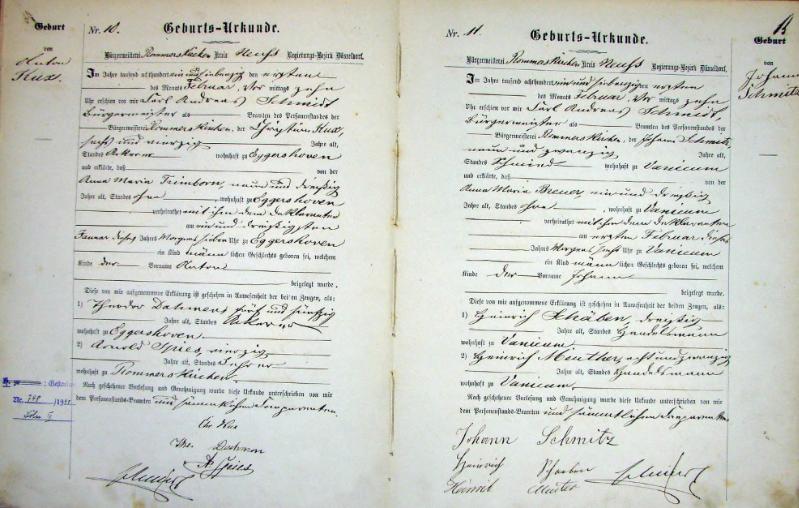 Geburt
von
Anton
Kux.
Nr. 10. Geburts-Urkunde.
Bürgermeisterei Rommerskirchen Kreis Neuss Regierungs-Bezirk Düsseldorf.
Im Jahre tausend achthundert ein und siebenzig den ersten
des Monats Februar, Vor mittags zehn
Uhr erschien vor mir Carl Andreas Schmidt
Bürgermeister als Beamten des Personenstandes der
Bürgermeisterei Rommerskirchen, der Christian Kux,
sechs und vierzig Jahre alt,
Standes Ackerer wohnhaft zu Eggershoven
und erklärte, daß von der
Anna Maria Trimborn, neun und dreißig
Jahre alt, Standes ohne wohnhaft zu Eggershoven
verheirathet mit ihm dem Deklaranten
am ein und dreißigsten
Januar dieses Jahres Morgens sieben Uhr zu Eggershoven
ein Kind männlichen Geschlechts geboren sei, welchem
Kinde der Vorname Anton
beigelegt wurde.
Diese von mir aufgenommene Erklärung ist geschehen in Anwesenheit der beiden Zeugen, als:
1) Theodor Dahmen, fünf und fünfzig
Jahre alt, Standes Ackerer
wohnhaft zu Eggershoven
2) Arnold Spies, vierzig
Jahre alt, Standes
wohnhaft zu Rommerskirchen.
Nach geschehener Vorlesung und Genehmigung wurde diese Urkunde unterschrieben von mir
dem Personenstands-Beamten und sämmtlichen Comparenten.
Dahmen
A Spies
Schmidt
Nr. 748 /19
14
Geburt
von
Johann
Schmitz
Nr. 11. Geburts-Urkunde.
Bürgermeisterei Rommerskirchen Kreis Neuss Regierungs-Bezirk Düsseldorf.
Im Jahre tausend achthundert ein und siebenzig ersten
des Monats Februar, Vor mittags zehn
Uhr erschien vor mir Carl Andreas Schmidt,
Bürgermeister als Beamten des Personenstandes der
Bürgermeisterei Rommerskirchen, der Johann Schmitz,
neun und zwanzig Jahre alt,
Standes Schmied wohnhaft zu Vanicum
und erklärte, daß von der
Anna Maria Breuer, ein und dreißig
Jahre alt, Standes ohne, wohnhaft zu Vanicum
verheirathet mit ihm dem Deklaranten
am ersten Februar dieses
Jahres Morgens Uhr zu Vanicum
ein Kind männlichen Geschlechts geboren sei, welchem
Kinde der Vorname Johann
beigelegt wurde.
Diese von mir aufgenommene Erklärung ist geschehen in Anwesenheit der beiden Zeugen, als:
1) Heinrich dreißig
Jahre alt, Standes Handelsmann
wohnhaft zu Vanicum
2) Heinrich acht und zwanzig
Jahre alt, Standes Handelsmann
wohnhaft zu Vanicum.
Nach geschehener Vorlesung und Genehmigung wurde diese Urkunde unterschrieben von mir
dem Personenstands-Beamten und sämmtlichen Comparenten.
Johann Schmitz
Heinrich Schmidt
Heinrich